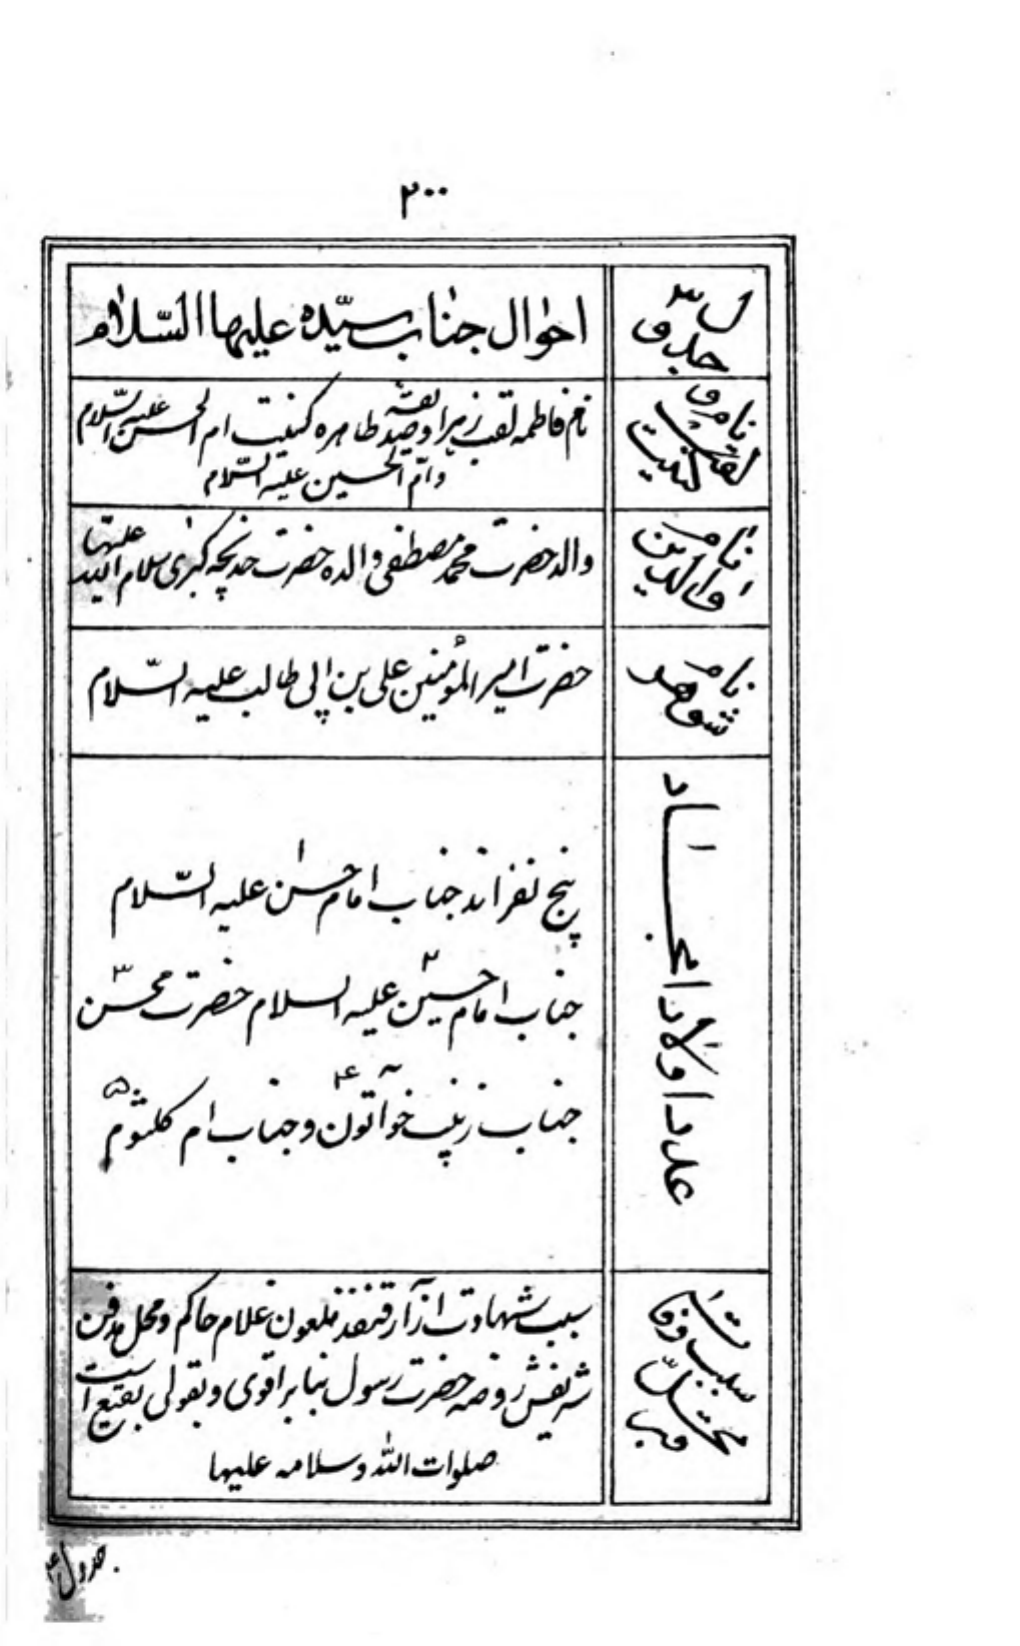 ۲۰۰
جدول ۳
احوال جناب سیّده علیها السّلام
نام و
لقب و
کنیت
نام فاطمه لقب زهرا وصدیقه طاهره کنیت ام الحسن علیه السّلام
وامّ الحسین علیه السّلام
نام
والدین
والد حضرت محمد مصطفی والده حضرت خدیجه کبری سلام الله علیها
نام
شوهر
حضرت امیر المؤمنین علی بن ابی طالب علیه السّلام
عدد اولاد امجاد
پنج نفر اند جناب امام حسن ۱ علیه السّلام
جناب امام حسین ۲ علیه السلام حضرت محسن ۳
جناب زینب خواتون ۴ و جناب ام کلثوم ۵
سبب وفات
محلّ
قبر
سبب شهادت از آزار قنفذ ملعون غلام حاکم و محل مدفن
شریفش روضه حضرت رسول بنا بر اقوی و بقولی بقیع است
صلوات الله وسلامه علیها
جدول ۴